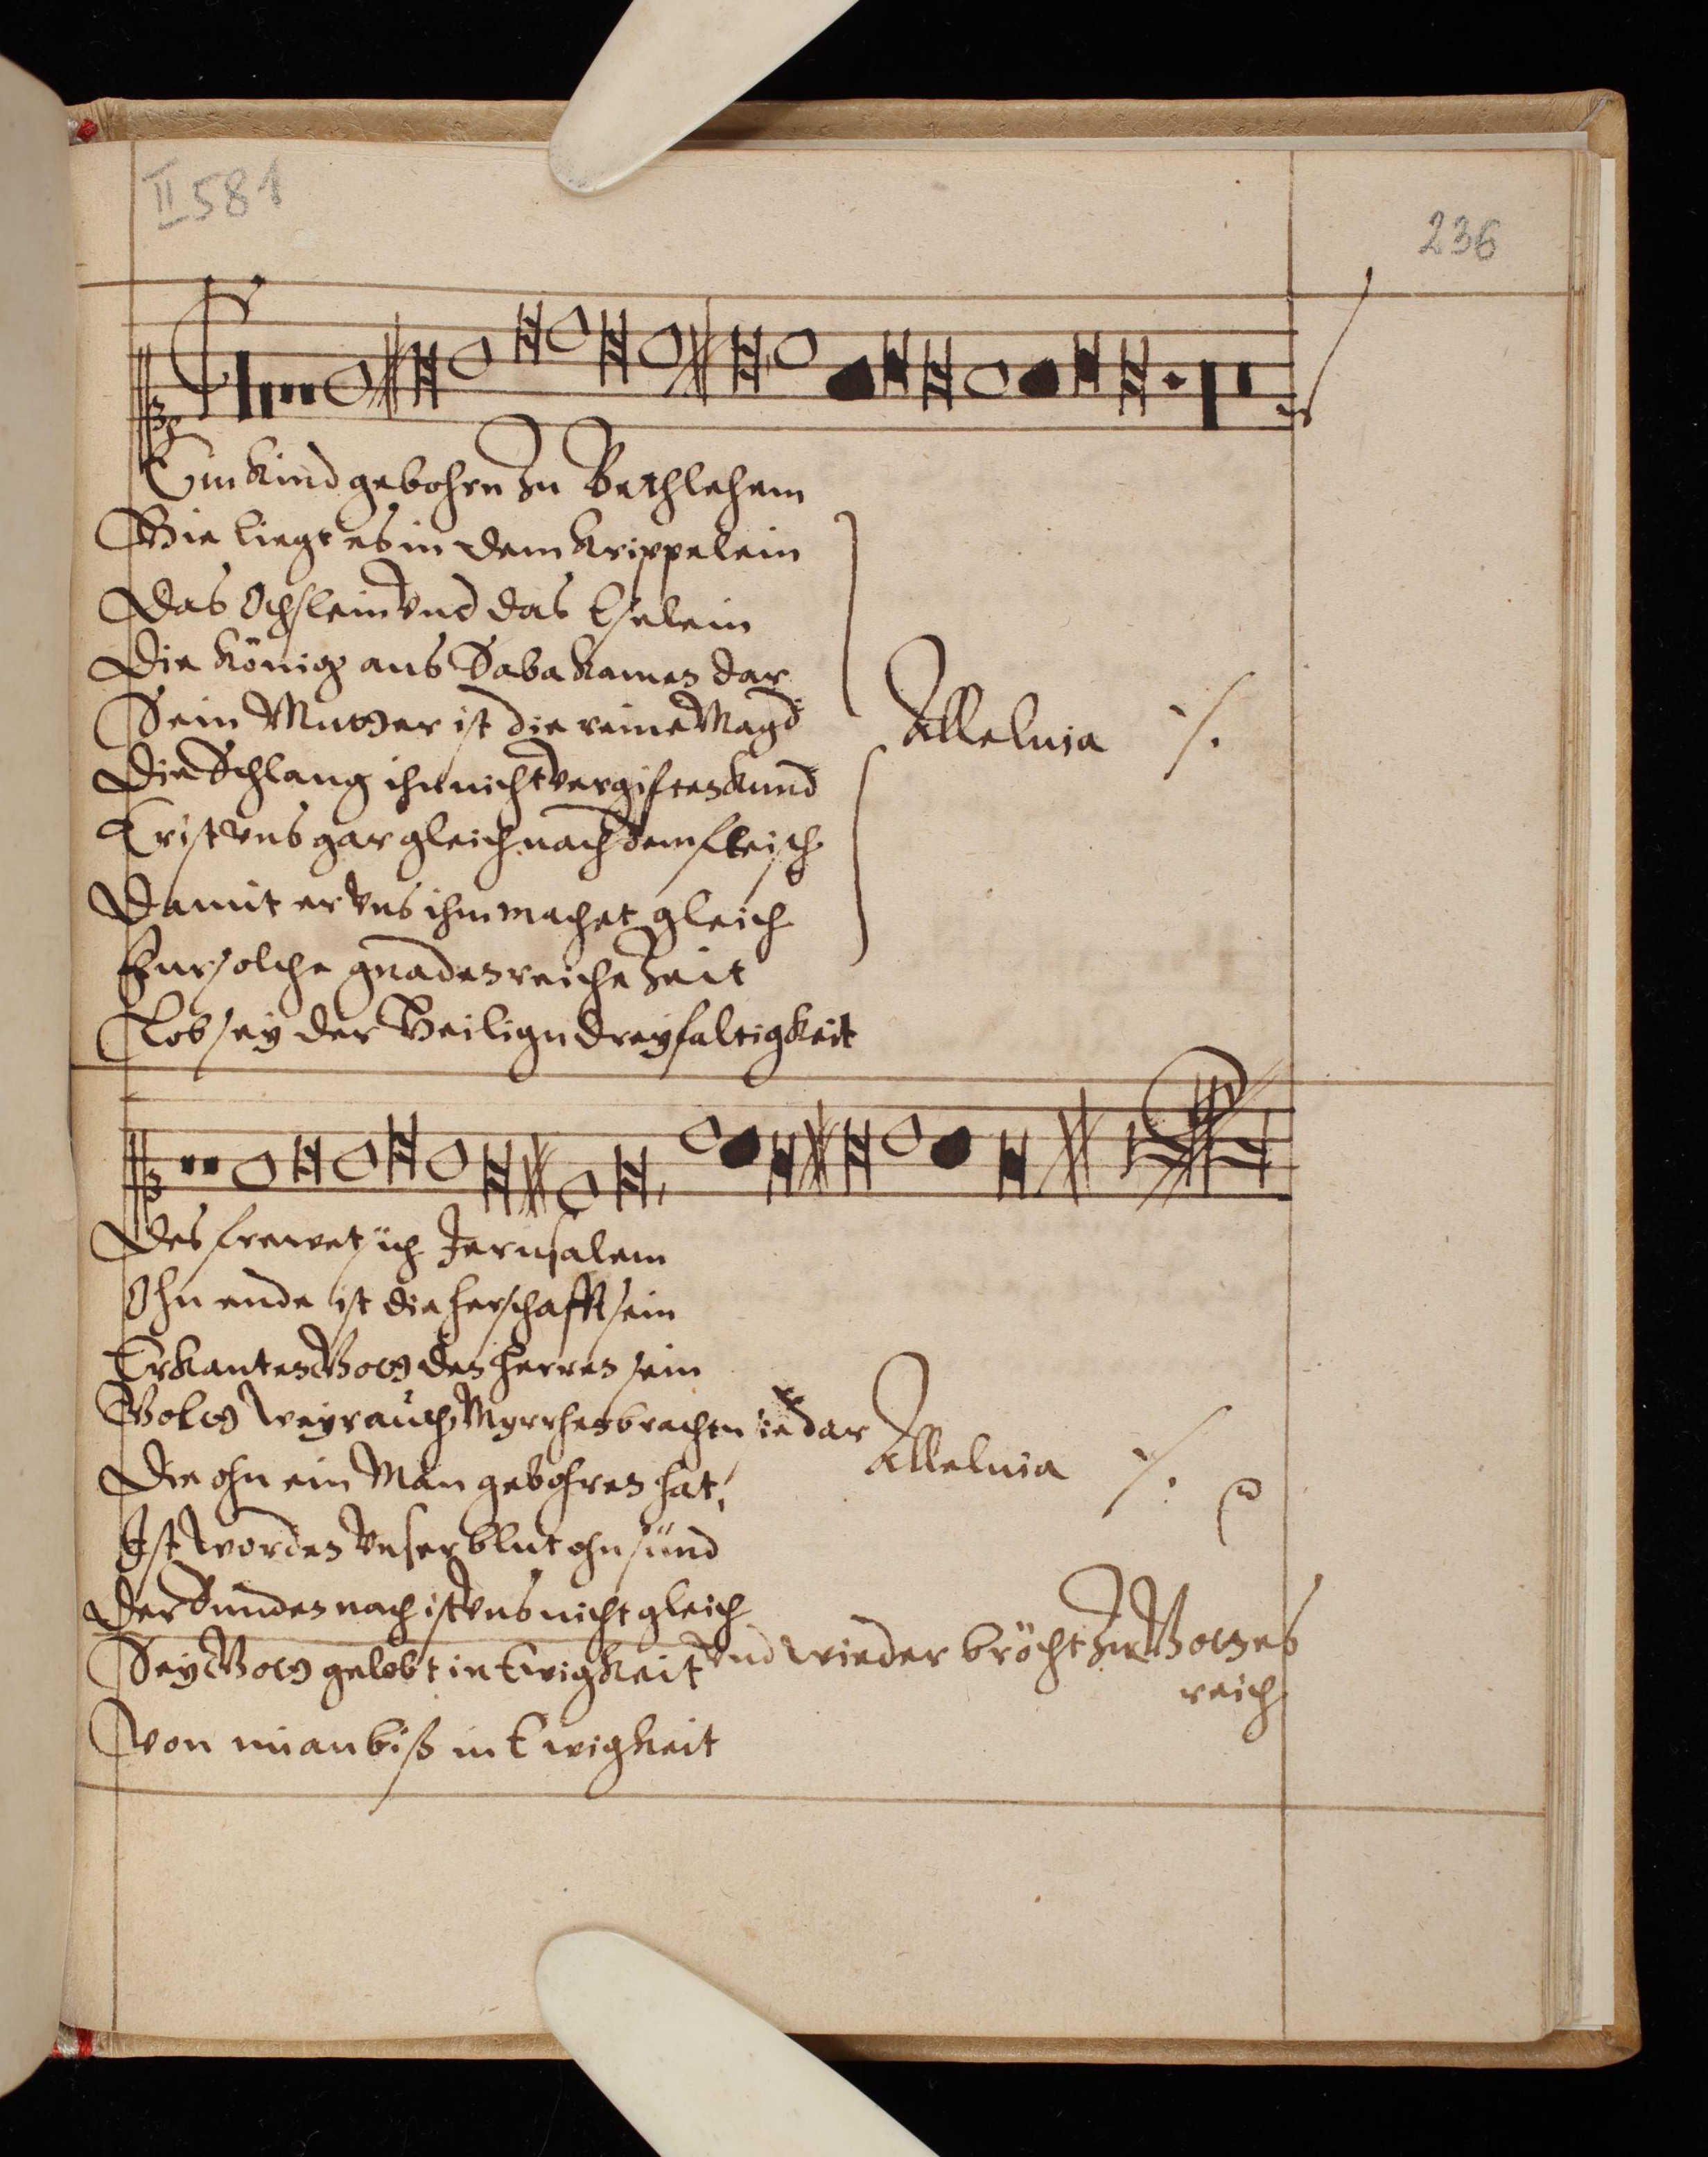 II 581
236
Ein Kind gebohrn zu Bethlehem
Hie liegt es in dem Krippelein
Das Ochslein vnd das Eselein
Die König aus Saba kamen dar
Sein Mutter ist die reine Magd
Die Schlang ihn nicht vergiften kund
Er ist vns gar gleich nach dem fleisch
Damit er vns ihm machet gleich
Fur solche gnadenreiche Zeit
Lob sey der Heilign dreyfaltigkeit
Alleluia ./.
Des frewet sich Jerusalem
Ohn ende ist die herschafft sein
Erkanten Gott den herren sein
Gold Weyrauch Myrrhen brachten sie dar
Die ohn ein Man gebohren hat
Ist worden vnser blut ohn sünd
Der Sunden nach ist vns nicht gleich
Vnd wieder brächt zu Gottes
reich
Sey Gott gelobt in Ewigkeit
Von nu an biß in Ewigkeit
Alleluia ./.